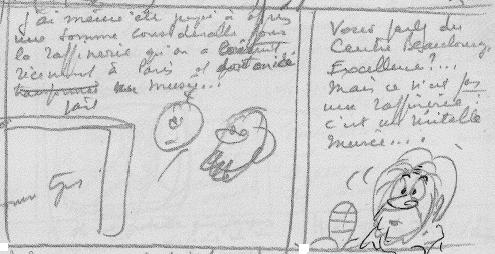 j'ai même été prié à offrir
une somme considérable pour
la raffinerie qu'on a construit
récemment à Paris et dont on a
transformée un musée...
fait
Vous parlez du
Centre Beaubourg,
Excellence?...
Mais ce n'est pas
une raffinerie!
c'est un véritable
musée....